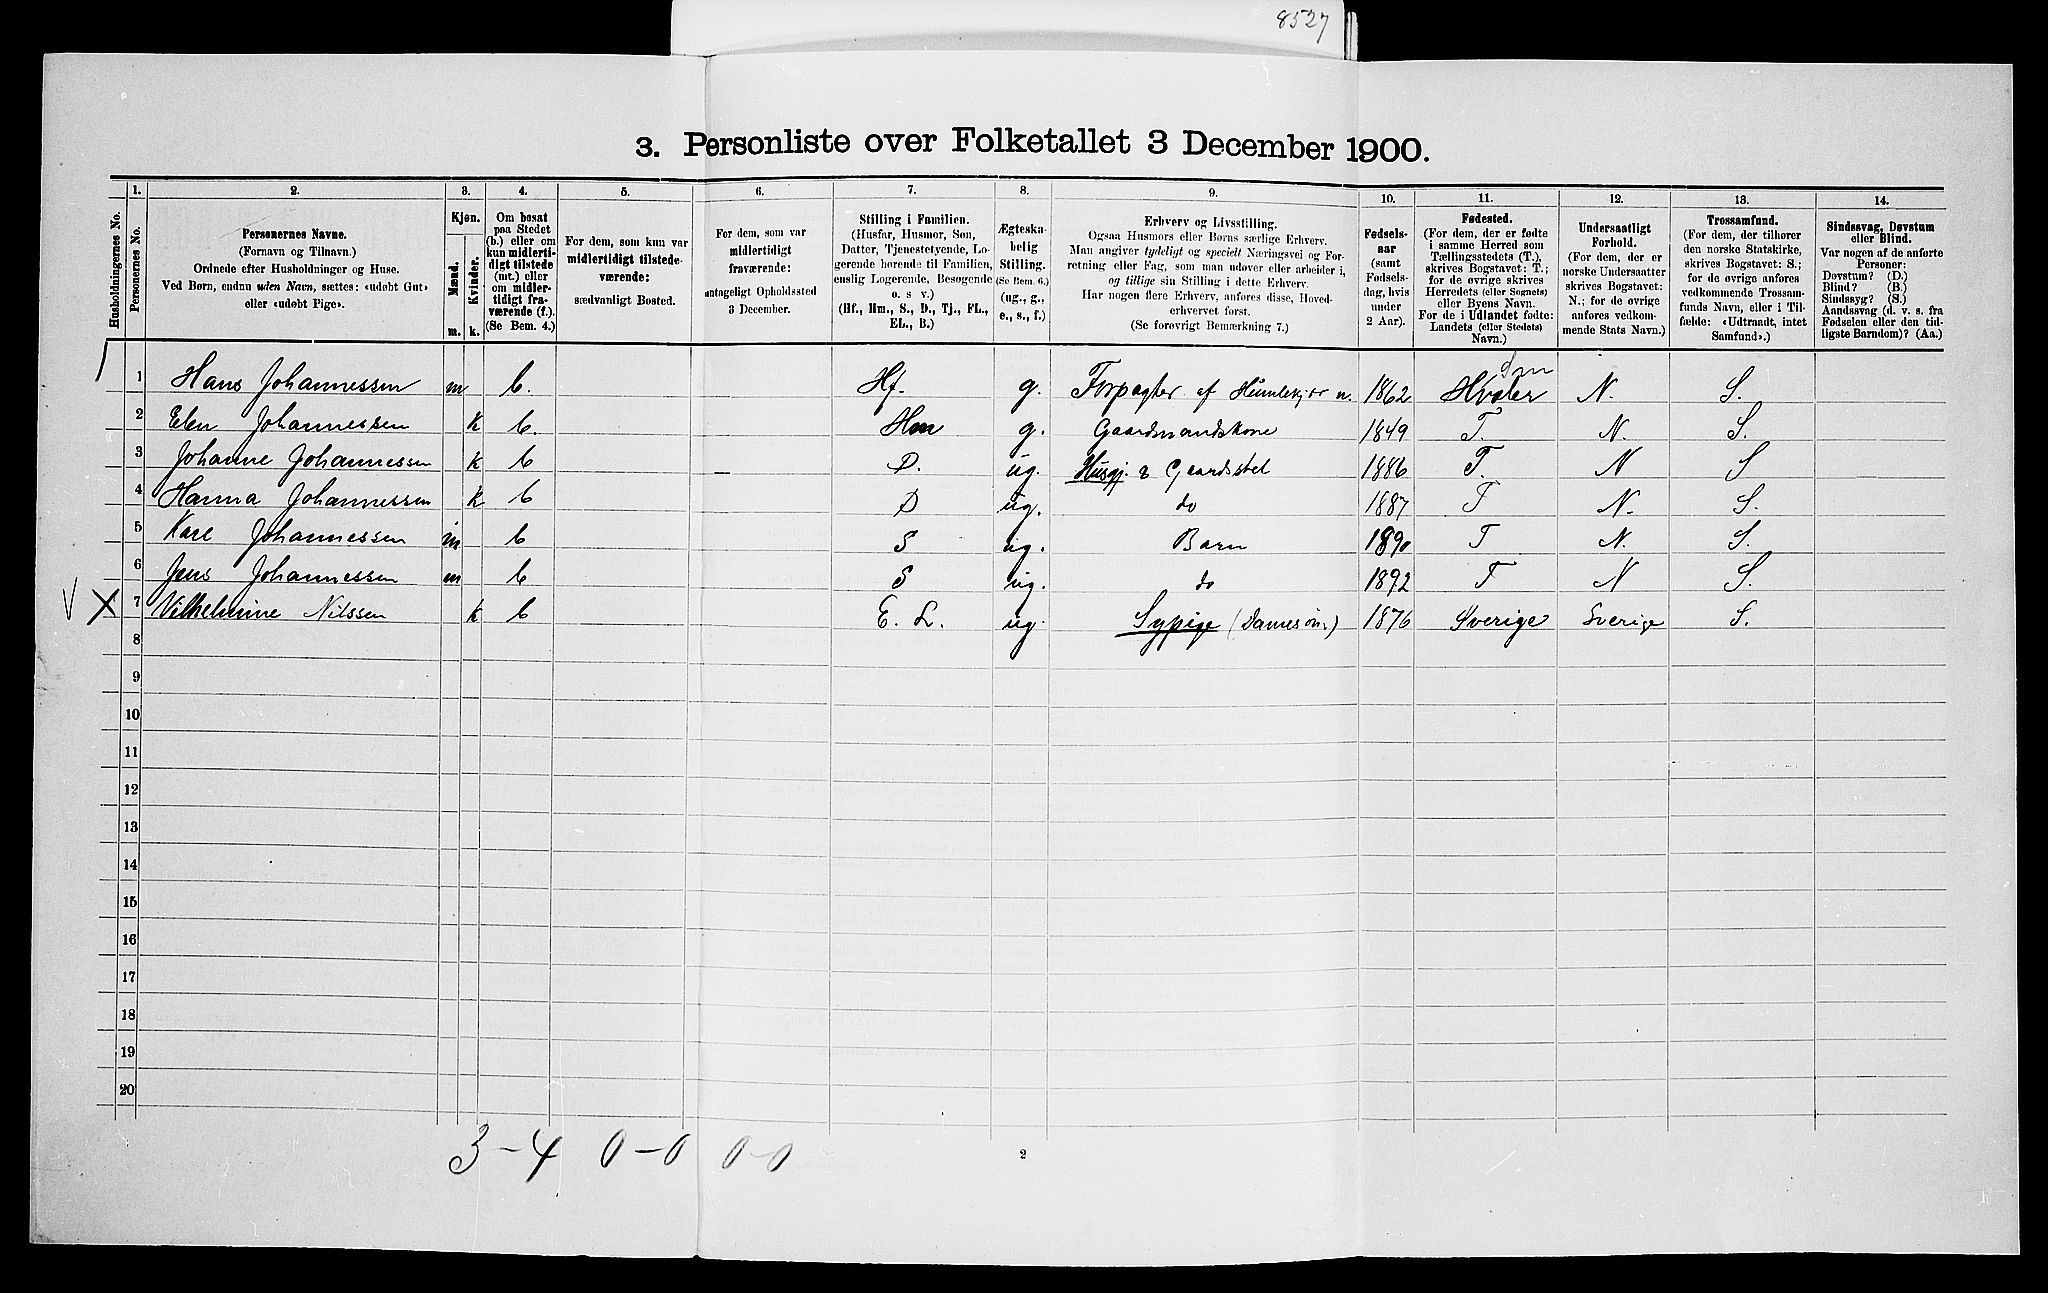 8527
3. Personliste over Folketallet 3 December 1900.
1. 2. 3. 4. 5. 6. 7. 8. 9. 10. 11. 12. 13. 14.
Husholdningernes No.
Personernes No.
Personernes Navne.
(Fornavn og Tilnavn.)
Ordnede efter Husholdninger og Huse.
Ved Børn, endnu uden Navn, sættes: «udøbt Gut»
eller «udøbt Pige».
Kjøn.
Mænd.
Kvinder.
m. k.
Om bosat
paa Stedet
(b.) eller om
kun midlerti-
digt tilstede
(mt.) eller
om midler-
tidigt fra-
værende (f.).
(Se Bem. 4.)
For dem, som kun var
midlertidigt tilstede-
værende:
sædvanligt Bosted.
For dem, som var
midlertidigt
fraværende:
antageligt Opholdssted
3 December.
Stilling i Familien.
(Husfar, Husmor, Søn,
Datter, Tjenestetyende, Lo-
gerende hørende til Familien,
enslig Logerende, Besøgende
o. s v.)
(Hf., Hm., S., D., Tj., FL.,
EL., B.)
Ægteska-
belig
Stilling.
(Se Bem. 6.)
(ug., g.,
e., s., f.)
Erhverv og Livsstilling.
Ogsaa Husmors eller Børns særlige Erhverv.
Man angiver tydeligt og specielt Næringsvei og For-
retning eller Fag, som man udøver eller arbeider i,
og tillige sin Stilling i dette Erhverv.
Har nogen flere Erhverv, anføres disse, Hoved-
erhvervet først.
(Se forøvrigt Bemærkning 7.)
Fødsels-
aar
(samt
Fødsels-
dag, hvis
under
2 Aar).
Fødested.
(For dem, der er fødte
i samme Herred som
Tællingsstedets (T.),
skrives Bogstavet: T.;
for de øvrige skrives
Herredets (eller Sognets)
eller Byens Navn.
For de i Udlandet fødte:
Landets (eller Stedets)
Navn.)
Undersaatligt
Forhold.
(For dem, der er
norske Undersaatter
skrives Bogstavet:
N.; for de øvrige
anføres vedkom-
mende Stats Navn.)
Trossamfund.
(For dem, der tilhører
den norske Statskirke,
skrives Bogstavet: S.;
for de øvrige anføres
vedkommende Trossam-
funds Navn, eller i Til-
fælde: «Udtraadt, intet
Samfund».)
Sindssvag, Døvstum
eller Blind.
Var nogen af de anførte
Personer:
Døvstum? (D.)
Blind? (B.)
Sindssyg? (S.)
Aandssvag (d. v. s. fra
Fødselen eller den tid-
ligste Barndom)? (Aa.)
1 1 Hans Johannessen m b. Hf. g. Forpagter af Humlekjær n. 1862 Hvaler Sm N. S.
2 Elen Johannessen k b. Hm g. Gaardmandskone 1849 T. N. S.
3 Johanne Johannessen k b – D. ug. Husgj. & Gaardsstel 1886 T. N S
4 Hanna Johannessen k b D ug. do 1887 T N. S.
5 Kare Johannessen m b S ug. Barn 1890 T N. S.
6 Jens Johannessen m b S ug. do 1892 T N S.
V X 7 Vilhelmine Nilssen k b E. L. ug. Sypige (Damesøm.) 1876 Sverige Sverige S.
8
9
10
11
12
13
14
15
16
17
18
19
20
3 – 4 0 – 0 0 – 0
2